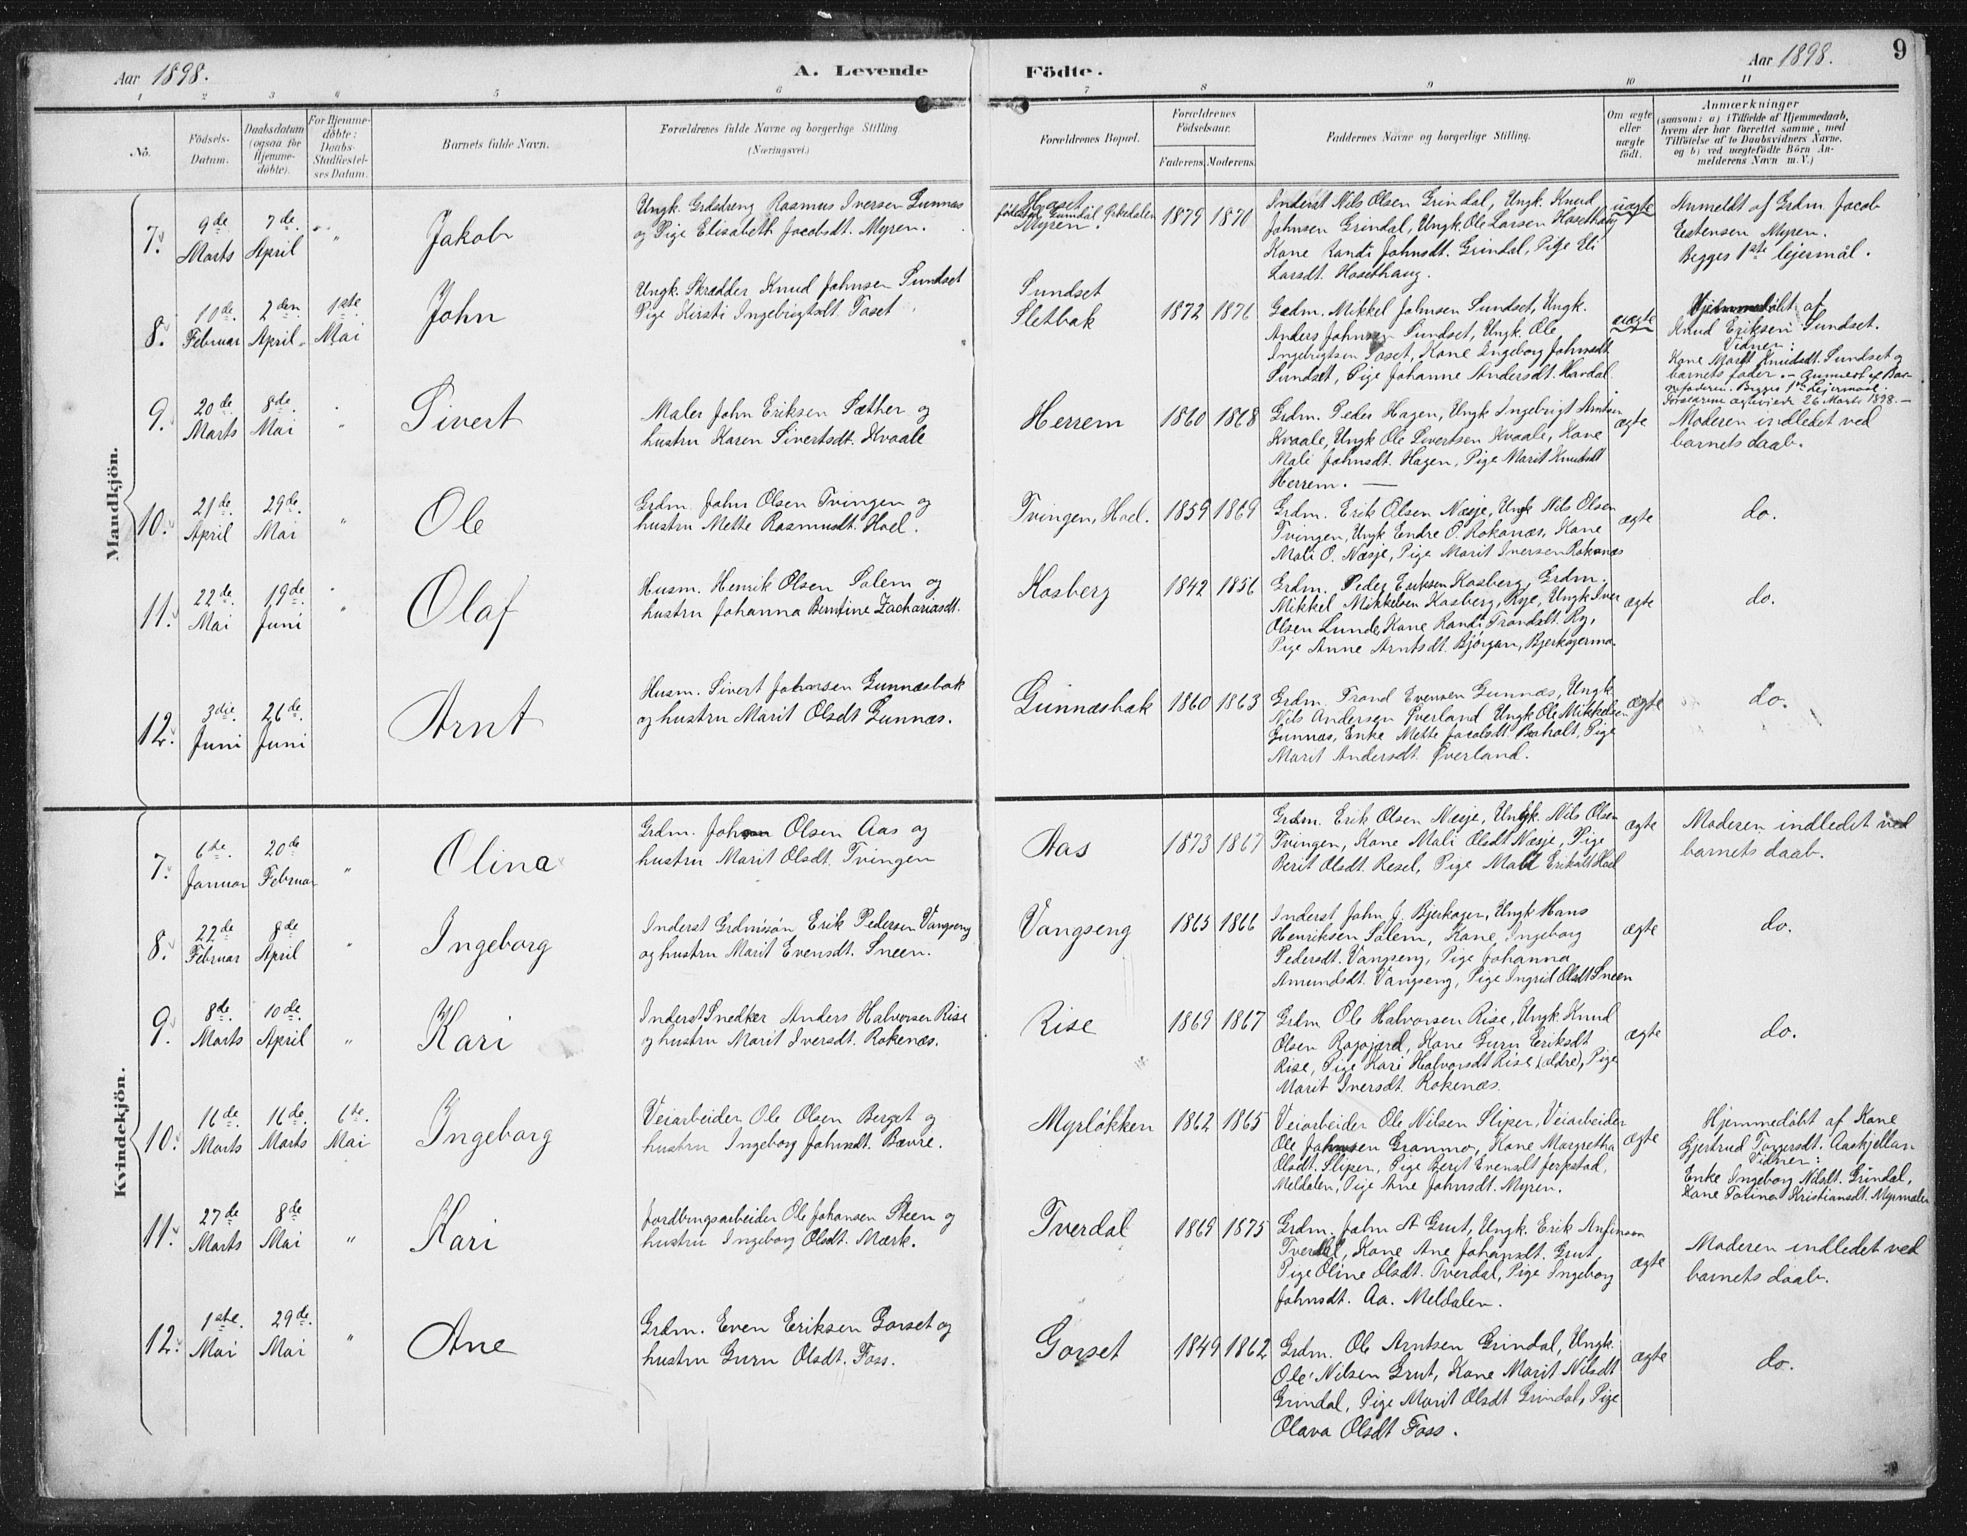 Aar 1898.
A. Levende
Födte.
Aar 1898.
9
1 2 3 4 5 6 7 8 9 10 11
No.
Födsels-
Datum.
Daabsdatum
(ogsaa for
Hjemme-
döbte).
For Hjemme-
döbte:
Daabs-
Stadfæstel-
ses Datum.
Barnets fulde Navn.
Forældrenes fulde Navne og borgerlige Stilling
(Næringsvei.)
Forældrenes Bopæl.
Forældrenes
Födselsaar.
Faderens. Moderens.
Faddernes Navne og borgerlige Stilling.
Om ægte
eller
uægte
födt.
Anmærkninger
(saasom: a) i Tilfælde af Hjemmedaab,
hvem der har forrettet samme, med
Tilföielse af to Daabsvidners Navne.
og b) ved uægtefödte Börn An-
melderens Navn m. V.)
Mandkjön.
7.
9de
Marts
7de
April
"
Jakob
Ungk. Grdsdreng Rasmus Iversen Gunnæs
og Pige Elisabeth Jacobsdt. Myren.
Myren.
1879
1870
Inderst Nils Olsen Grindal, Ungk. Knud
Johnsen Grindal, Ungk. Ole Larsen Hosethaug
Kone Randi Johnsdt. Grindal, Pige Eli
Larsdt. Hosethaug.
uægte
Anmeldt af Grdm. Jacob
Estensen Myren.
Begges 1ste lejermål.
8.
10de.
Februar
2den
April
1ste
Mai
John
Ungk. Skrædder Knud Johnsen Sundset
Pige Kirsti Ingebrigtsdt. Foset
Sundset
Sletbak
1872
1876
Grdm. Mikkel Johnsen Sundset, Ungk.
Anders Johnsen Sundset, Ungk. Ole
Ingebrigtsen Foset, Kone Ingeborg Johnsdt
Sundset, Pige Johanne Andersdt. Hovdal.
uægte
Hjemmedøbt af
Knud Eriksen Sundset.
Vidner:
Kone Marit Knudsdt. Sundset og
barnets fader. – Anmeldt af Bar-
nefaderen. Begges 1ste Lejermaal.
Forældrene ægteviede 26 Marts 1898. –
9.
20de
Marts
8de.
Mai
"
Sivert
Maler John Eriksen Sæther og
hustru Karen Sivertsdt. Kvaale
Herrem
1860
1868
Grdm. Peder Hagen, Ungk Ingebrigt Arntsen
Kvaale, Ungk Ole Sivertsen Kvaale, Kone
Mali Johnsdt. Hagen, Pige Marit Knudsdt
Herrem. —
ægte
Moderen indledet ved
barnets daab.
10.
21de
April
29de.
Mai
"
Ole
Grdm. John Olsen Tvingen og
hustru Mette Rasmusdt. Hoel.
Tvingen, Hoel.
1859
1869
Grdm. Erik Olsen Næsje, Ungk Nils Olsen
Tvingen, Ungk Endre O. Rokenæs, Kone
Mali O. Næsje, Pige Marit Iversen Rokenæs
ægte
do.
11.
22de.
Mai
19de.
Juni
"
Olaf
Husm. Henrik Olsen Solem og
hustru Johanna Berntine Zachariasdt.
Kosberg
1842
1856
Grdm. Peder Eriksen Kosberg, Grdm.
Mikkel Mikkelsen Kosberg, Rye, Ungk Iver
Olsen Lunde, Kone Randi Trondsdt. Ry,
Pige Anne Arntsdt. Bjørgan, Bjerkagermo.
ægte
do.
12.
3die.
Juni
26de.
Juni
Arnt
Husm. Sivert Johnsen Gunnæsbak
og hustru Marit Olsdt Gunnæs.
Gunnæsbak
1860
1863
Grdm. Trond Evensen Gunnæs, Ungk
Nils Andersen Øverland Ungk Ole Mikkelsen
Gunnæs, Enke Mette Jacobsdt. Boholt, Pige
Marit Andersdt. Øverland.
ægte
do.
Kvindekjön.
7.
6te.
Januar
20de
Februar
"
Olina
Grdm. Johan Olsen Aas og
hustru Marit Olsdt. Tvingen
Aas
1873
1867
Grdm. Erik Olsen Næsje, Ungk. Nils Olsen
Tvingen, Kone Mali Olsdt Næsje, Pige
Berit Olsdt. Resel, Pige Mali Eriksdt Hoel
ægte
Moderen indledet ved
barnets daab.
8.
22de
Februar
8de
April
"
Ingeborg
Inderst Grdmssøn Erik Pedersen Vangseng
og hustru Marit Evensdt. Sneen.
Vangseng
1865
1866
Inderst John J. Bjerkagen, Ungk Hans
Henriksen Solem, Kone Ingeborg
Pedersdt. Vangseng, Pige Johanna
Amundsdt. Vangseng, Pige Ingrid Olsdt Sneen
ægte
do.
9.
8de.
Marts
10de.
April
"
Kari
Inderst, Snedker Anders Halvorsen Rise
og hustru Marit Iversdt. Rokenæs.
Rise
1869
1867
Grdm Ole Halvorsen Rise, Ungk Knud
Olsen Rogogjerd, Kone Guru Eriksdt
Rise, Pige Kari Halvorsdt Rise (ældre), Pige
Marit Iversdt. Rokenæs.
ægte
do.
10.
16de
Marts
16de.
Marts
6te.
Mai
Ingeborg
Veiarbeider Ole Olsen Berget og
hustru Ingeborg Johnsdt. Bævre.
Myrløkken
1862
1865
Veiarbeider Ole Nilsen Slipen, Veiarbeider
Ole Johnsen Granmo, Kone Margretha
Olsdt. Slipen, Pige Berit Evensdt Jerpstad,
Meldalen, Pige Ane Johnsdt. Myren.
ægte
Hjemmedøbt af Kone
Gjertrud Torgersdt. Aaskjellan
Vidner:
Enke Ingeborg Nilsdt. Grindal,
Kone Torina Kristiansdt. Myrmalen
11.
27de
Marts
8de
Mai
"
Kari
Jordbrugsarbeider Ole Johansen Steen og
hustru Ingeborg Olsdt. Mærk.
Tverdal
1869
1875
Grdm. John A Grut, Ungk. Erik Anfinsen
Tverdal, Kone Ane Johansdt. Grut
Pige Oline Olsdt. Tverdal, Pige Ingeborg
Johnsdt. Aa. Meldalen.
ægte
Moderen indledet ved
barnets daab.
12.
1ste.
Mai
29de.
Mai
"
Ane
Grdm. Even Eriksen Gorset og
hustru Guru Olsdt. Foss.
Gorset
1849
1862
Grdm. Ole Arntsen Grindal, Ungk.
Ole Nilsen Grut, Kone Marit Nilsdt
Grindal, Pige Marit Olsdt Grindal, Pige
Olava Olsdt Foss.
ægte
do.